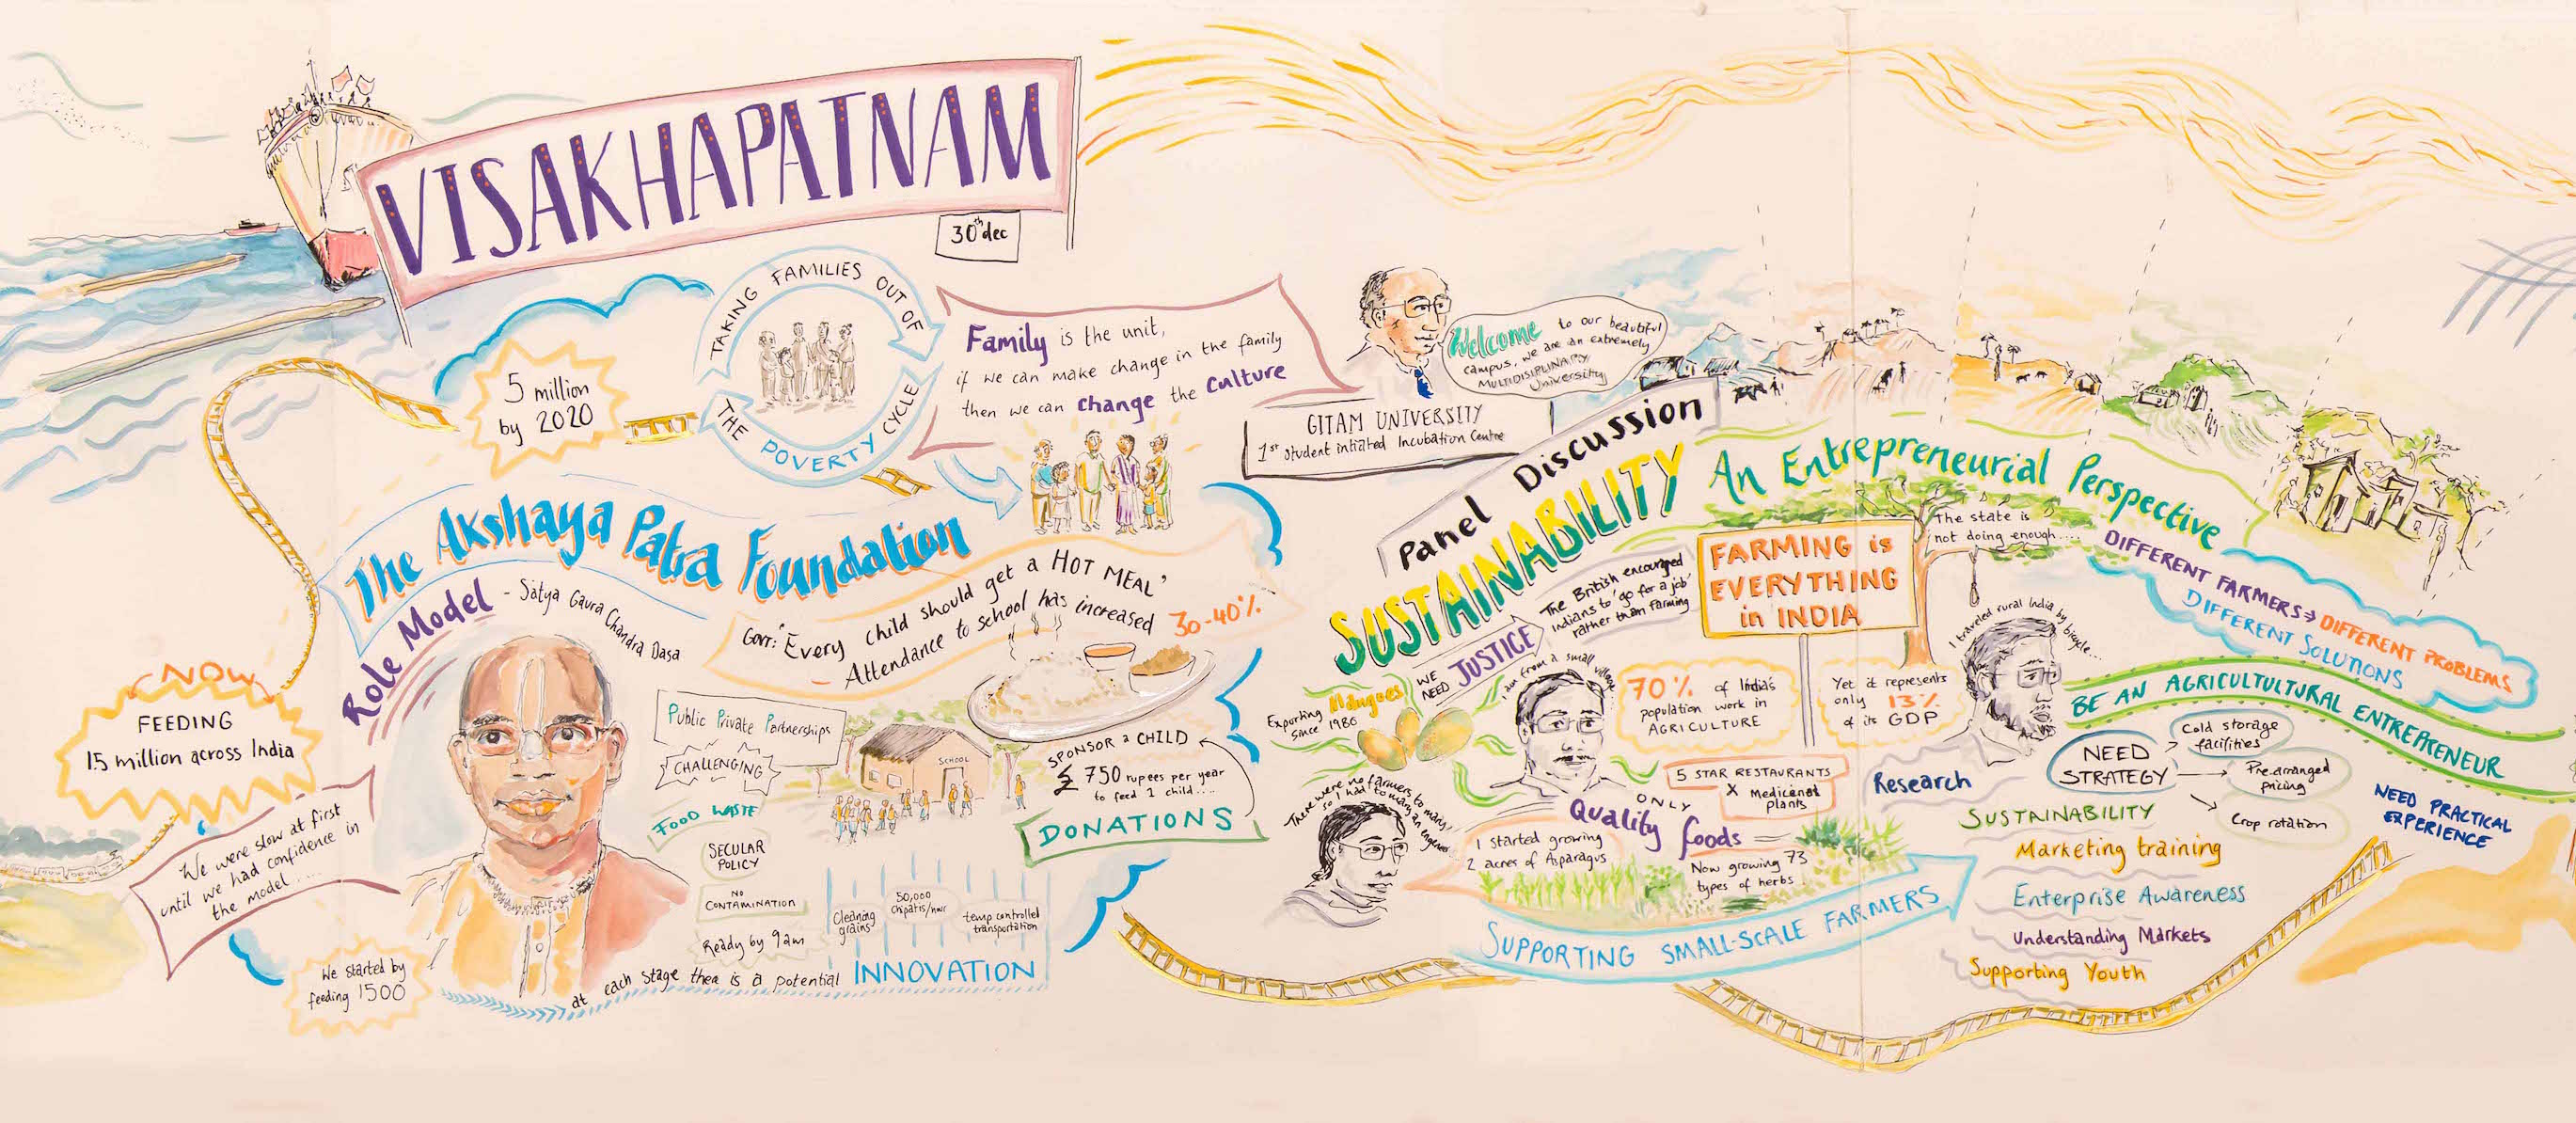 VISAKHAPATNAM
30th dec
TAKING FAMILIES OUT OF
THE POVERTY CYCLE
5 million
by 2020
Family is the unit,
if we can make change in the family
then we can change the culture
The Akshaya Patra Foundation
Role Model - Satya Gaura Chandra Dasa
Govt: "Every child should get a HOT MEAL'
- Attendance to school has increased 30-40%
NOW
FEEDING
1.5 million across India
We were slow at first
until we had confidence in
the model....
We started by
feeding 1500
Public Private Partnerships
CHALLENGING
FOOD WASTE
SECULAR
POLICY
NO
CONTAMINATION
Ready by 9am
SCHOOL
Cleaning
grains
50,000
chpatis/hour
temp controlled
transportation
at each stage thea is a potential INNOVATION
SPONSOR a CHILD
750 rupees per year
to feed 1 child....
DONATIONS
Welcome to our beautiful
campus, we are an extremely
MULTIDISIPLINARY
University
GITAM UNIVERSITY
1st student intiated Incubation Centre
Panel Discussion
SUSTAINABILITY An Entrepreneurial Perspective
WE
NEED JUSTICE
The British encouraged
Indians to 'go for a job'
rather than farming
FARMING is
EVERYTHING
in INDIA
The state is
not doing enough....
DIFFERENT FARMERS → DIFFERENT PROBLEMS
DIFFERENT SOLUTIONS
Exporting Mangoes
since 1986
I am from a small village
70% of India's
population work in
AGRICULTURE
Yet it represents
only 13%
of its GDP
I traveled rural India by bicycle...
There were no farmers to marry
so I had to marry an engineer
5 STAR RESTAURANTS
X Medicenal
plants
ONLY
Quality foods
1 started growing
2 acres of Asparagus
Now growing 73
types of herbs
SUPPORTING SMALL-SCALE FARMERS
Research
BE AN AGRICULTULTURAL ENTREPRENEUR
NEED
STRATEGY
Cold storage
facilities
Pre-arranged
pricing
Crop rotation
NEED PRACTICAL
EXPERIENCE
SUSTAINABILITY
Marketing training
Enterprise Awareness
Understanding Markets
Supporting Youth